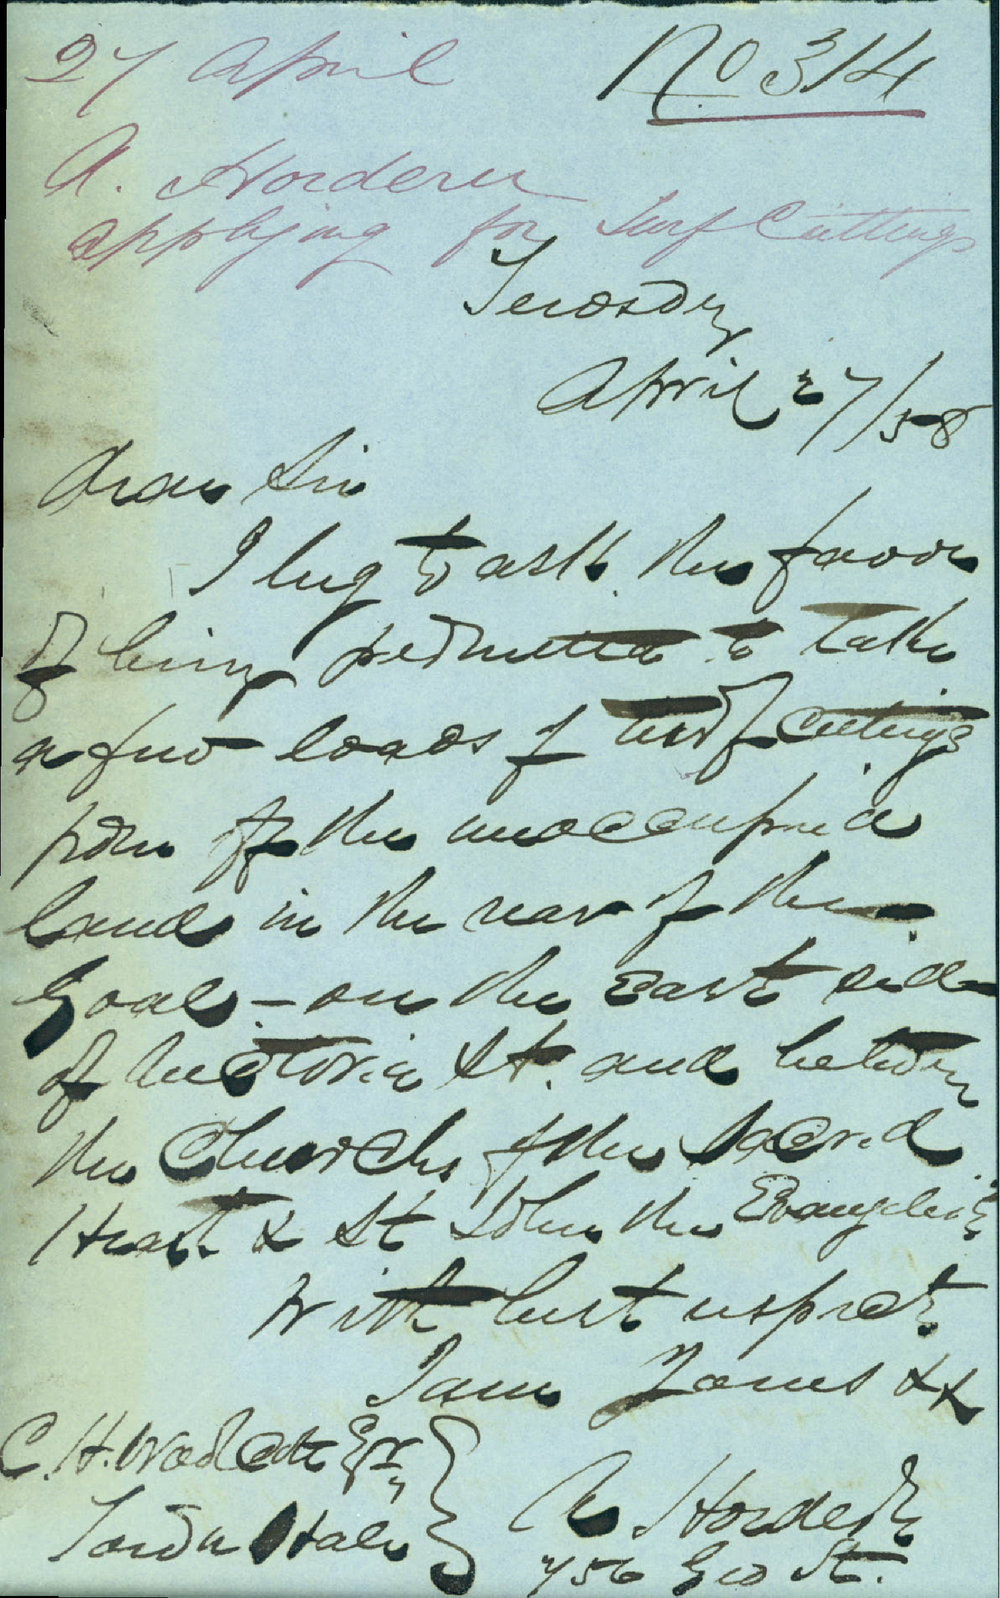 27 April No 314
A. Hordern
applying for Turf Cuttings
Tuesday
April 27/58
Dear Sir
I beg to ask the favor
of being permitted to take
a few loads of turf cuttings
from off the unoccupied
land in the rear of the
Goal - on the East side
of Victoria St. and between
the Church of the Sacred
Heart & St John the Evangelist
With best respects
I am Yours &&
C. H. Woolcott Esqr
Town Hall
A Hordern
756 Geo St.